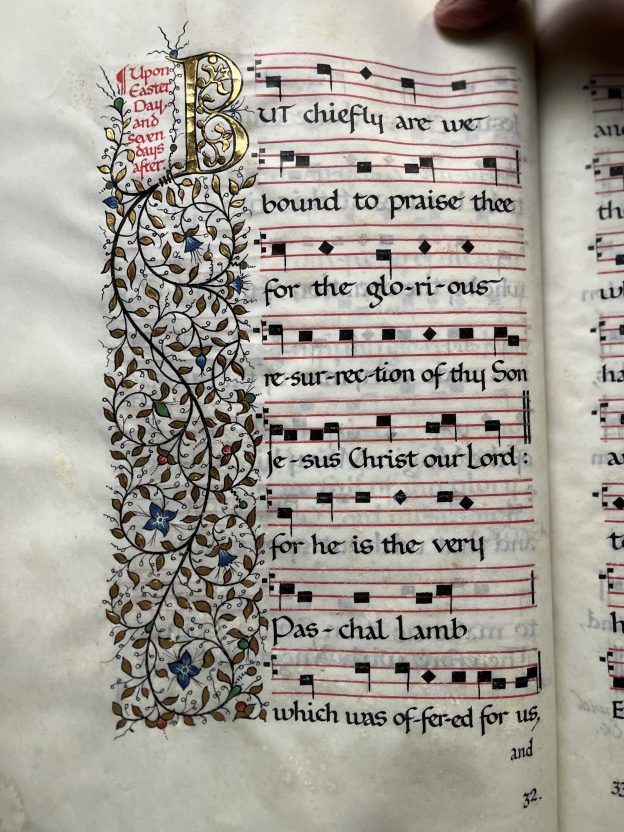 ¶ Upon
Easter
Day,
and
seven
days
after.
BUT chiefly are we
bound to praise thee
for the glo-ri-ous
re-sur-rec-tion of thy Son
Je-sus Christ our Lord:
for he is the very
Pas-chal Lamb
which was of-fer-ed for us,
and
32.
33